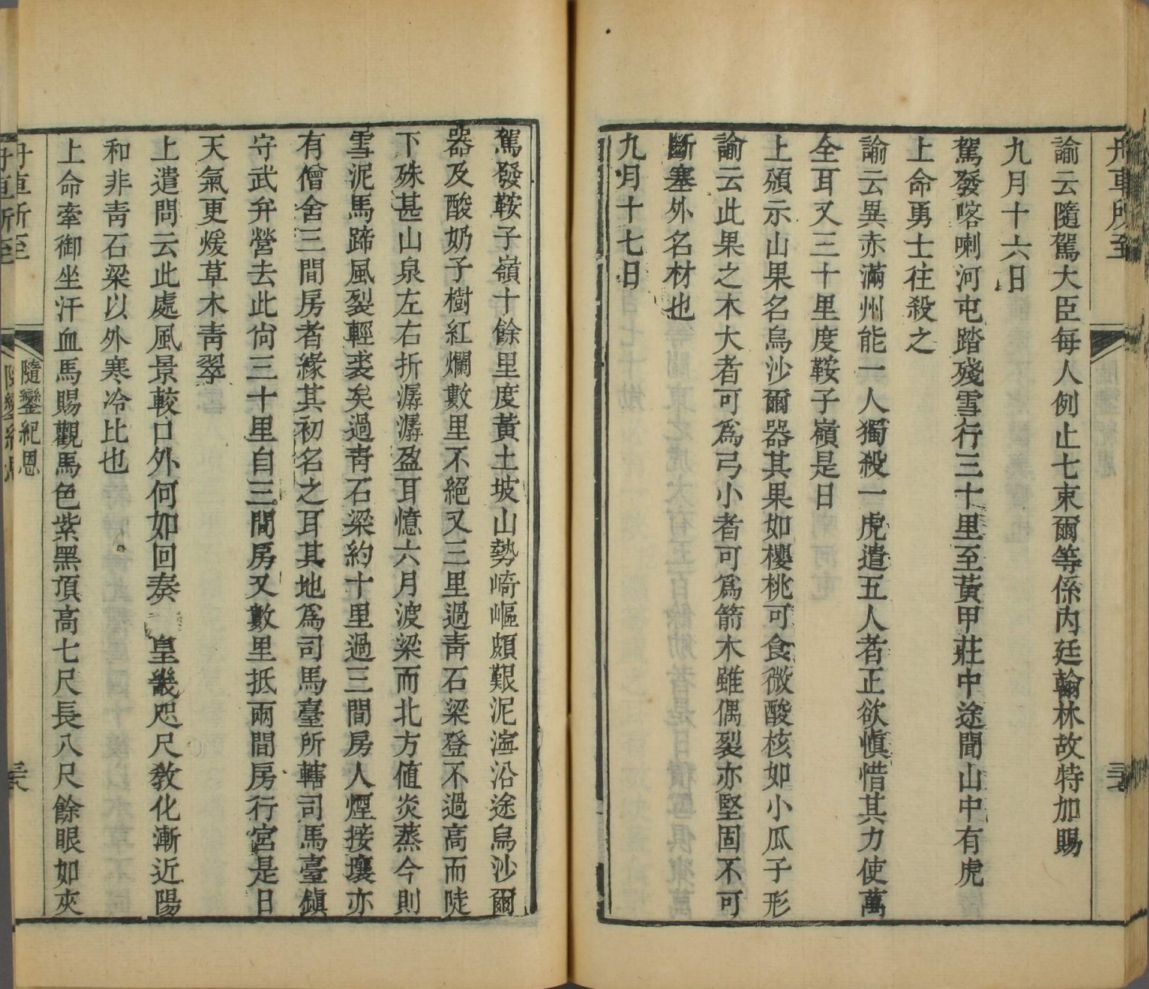 舟車所至
諭云隨駕大臣每人例止七東爾等係内廷翰林故特加賜
九月十六日
駕發喀喇河屯踏殘雪行三十里至黃甲莊中途聞山中有虎
上命勇士往殺之
諭云異赤滿州能一人獨殺一虎遣五人者正欲慎惜其力使萬
全耳又三十里度鞍子嶺是日
上頒示山果名烏沙爾器其果如櫻桃可食微酸核如小瓜子形
諭云此果之木大者可為弓小者可為箭木雖偶裂亦堅固不可
斷塞外名材也
九月十七日
駕發鞍子嶺十餘里度黃土坡山勢崎嶇頗艱泥濘沿途烏沙爾
器及酸奶子樹紅爛數里不絕又三里過靑石梁登不過高而陡
下殊甚山泉左右折潺潺盈耳憶六月渡梁而北方値炎蒸今則
雪泥馬蹄風裂輕裘矣過靑石梁約十里過三間房人煙接壤亦
有僧舍三間房者緣其初名之耳其地為司馬臺所轄司馬臺鎭
守武弁營去此尙三十里自三間房又數里抵兩間房行宮是日
天氣更煖草木靑翠
上遣問云此處風景較口外何如回奏皇畿咫尺敎化漸近陽
和非靑石梁以外寒冷比也
上命牽御坐汗血馬賜觀馬色紫黑頂高七尺長八尺餘眼如夾
隨鑾紀恩